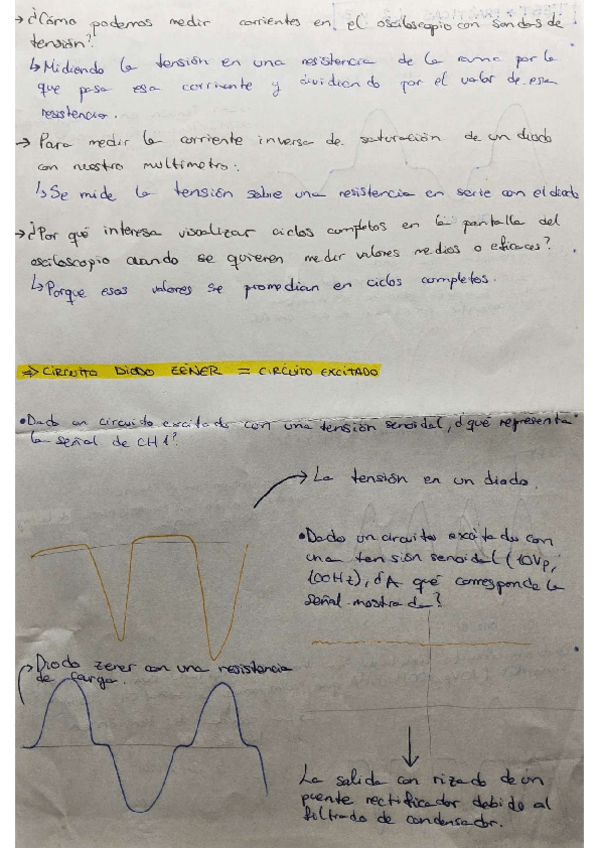 → ¿Cómo podemos medir corrientes en el osciloscopio con sondas de
tensión?
↳ Midiendo la tensión en una resistencia de la rama por la
que pasa esa corriente y dividiendo por el valor de esa
resistencia.
→ Para medir la corriente inversa de saturación de un diodo
con nuestro multímetro.
↳ Se mide la tensión sobre una resistencia en serie con el diodo
→ ¿Por qué interesa visualizar ciclos completos en la pantalla del
osciloscopio cuando se quieren medir valores medios o eficaces?
↳ Porque esos valores se promedian en ciclos completos.
⇒ CIRCUITO DIODO ZÉNER = CIRCUITO EXCITADO
• Dado un circuito excitado con una tensión senoidal, ¿qué representa
la señal de CH1?
→ La tensión en un diodo.
• Dado un circuito excitado con
una tensión senoidal (10Vp,
100Hz), ¿A qué corresponde la
señal mostrada?
Diodo zener con una resistencia
de carga.
La salida con rizado de un
puente rectificador debido al
filtrado de condensador.